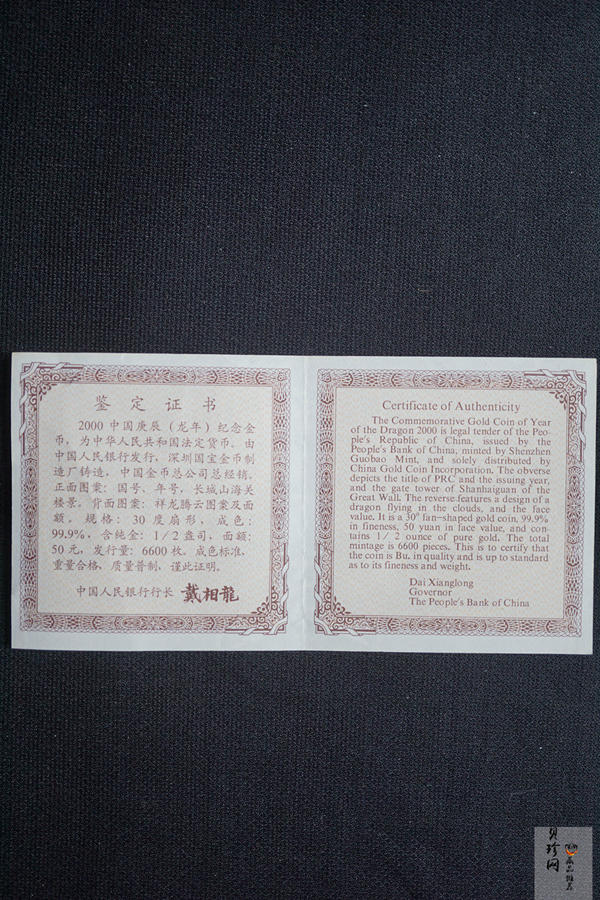 鉴定证书
2000 中国庚辰（龙年）纪念金
币，为中华人民共和国法定货币。由
中国人民银行发行，深圳国宝金币制
造厂铸造，中国金币总公司总经销。
正面图案：国号、年号，长城山海关
楼景。背面图案：祥龙腾云图案及面
额。规格：30 度扇形，成色：
99.9%，含纯金：1/2 盎司，面额：
50 元，发行量：6600 枚。成色标准，
重量合格，质量普制，谨此证明。
中国人民银行行长 戴相龍
Certificate of Authenticity
The Commemorative Gold Coin of Year
of the Dragon 2000 is legal tender of the Peo-
ple's Republic of China, issued by the
People's Bank of China, minted by Shenzhen
Guobao Mint, and solely distributed by
China Gold Coin Incorporation. The obverse
depicts the title of PRC and the issuing year,
and the gate tower of Shanhaiguan of the
Great Wall. The reverse features a design of a
dragon flying in the clouds, and the face
value. It is a 30° fan-shaped gold coin, 99.9%
in fineness, 50 yuan in face value, and con-
tains 1/2 ounce of pure gold. The total
mintage is 6600 pieces. This is to certify that
the coin is Bu. in quality and is up to standard
as to its fineness and weight.
Dai Xianglong
Governor
The People's Bank of China
贝珍网
藏品推荐